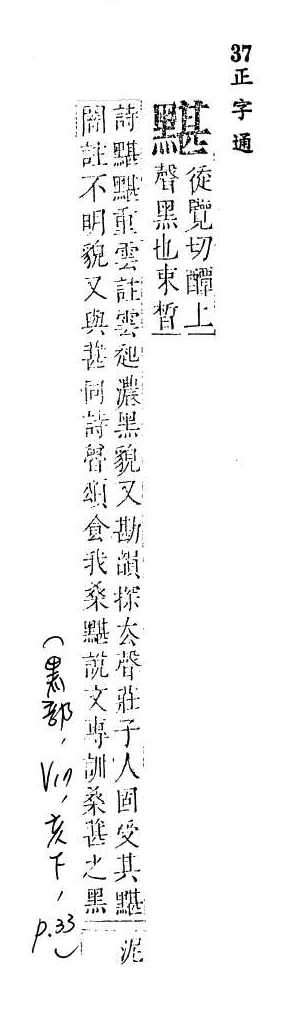 37 正字通
黮 徒覽切醰上
聲黑也束晳
詩黮黮重雲註雲起濃黑貌又勘韻探去聲莊子人固受其黮
闇註不明貌又與葚同詩魯頌食我桑黮說文專訓桑葚之黑
泥
(黑部, V17, 亥下, p.33)